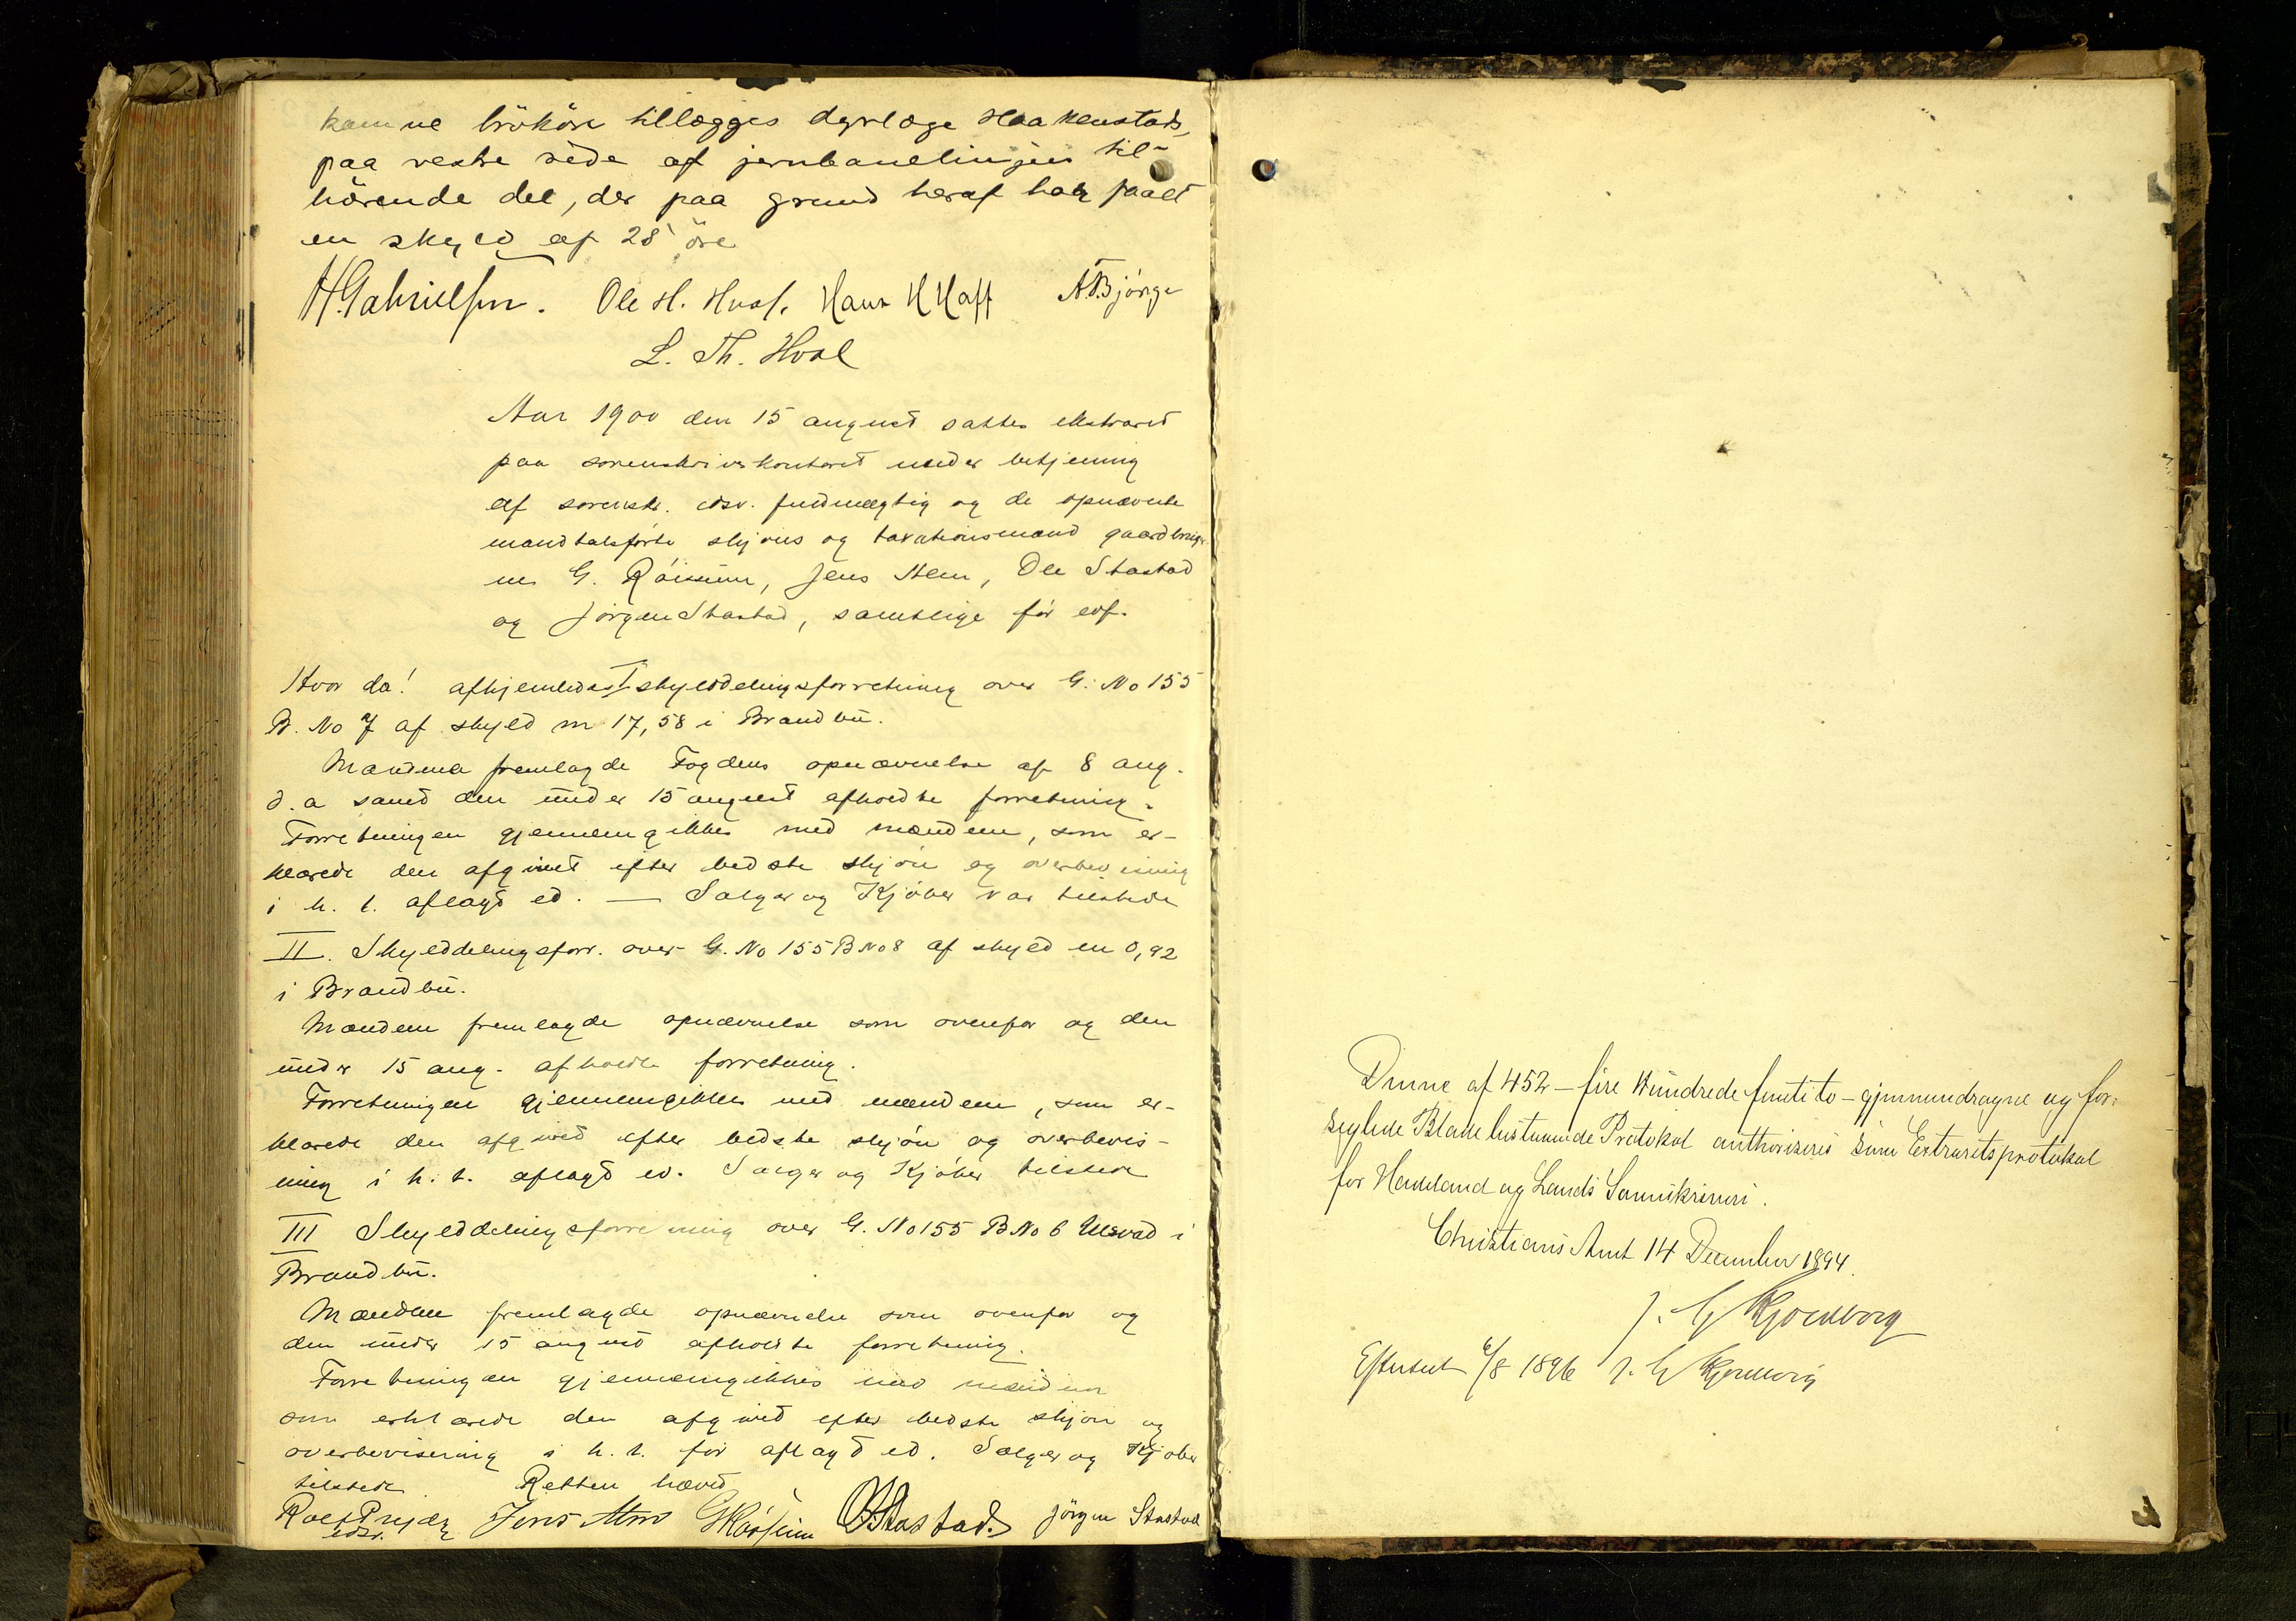 kamme brököre tillægges dyrlæge Haakenstads,
paa vestre side af jernbanelinjen til-
hörende del, der paa grund heraf har faaet
en skyld af 28 öre
H. Gabrielsen. Ole H. Hval. Hans H Haff A. Björge
L. Th. Hval
Aar 1900 den 15 august sattes ekstraret
paa sorenskriverkontoret under betjening
af sorenskr. edsv. fuldmægtig og de opnævnte
mandtalsførte skjøns og taxationsmænd gaardbruger
ne G. Røisum, Jens Alm, Ole Stastad
og Jørgen Stastad, samtlige før edf.
Hvor da! afhjemledes I skylddelingsforretning over G. No 155
B. No 7 af skyld m 17,58 i Brandbu.
Mændene fremlagde Fogdens opnævnelse af 8 aug.
d.a samt den under 15 august afholdte forretning.
Forretningen gjennemgikkes med mændene, som er-
klærede den afgivet efter bedste skjøn og overbevisning
i h. t. aflagt ed. — Sælger og Kjøber var tilstede
II. Skylddelingsforr. over G. No 155 B No 8 af skyld m 0,92
i Brandbu.
Mændene fremlagde opnævnelse som ovenfor og den
under 15 aug. afholdte forretning.
Forretningen gjennemgikkes med mændene, som er-
klærede den afgivet efter bedste skjøn og overbevis-
ning i h. t. aflagt ed. Sælger og Kjøber tilstede
III Skylddelingsforretning over G. No 155 B No 6 Ulsvad i
Brandbu.
Mændene fremlagde opnævnelse som ovenfor og
den under 15 august afholdte forretning.
Forretningen gjennemgikkes med mændene
som erklærede den afgivet efter bedste skjøn og
overbevisning i h. t. før aflagt ed. Sælger og Kjøber
tilstede Retten hævet
Rolf Prydz Jens Alm G Røisum O Stastad. Jörgen Stastad
edsv.
Denne af 452 – fire Hundrede femti to – gjennemdragne og for-
seglede Blade bestaaende Protokol authoriseres som Extraretsprotokol
for Hadeland og Lands Sorenskriveri.
Christians Amt 14 December 1894.
J. G Kjoelborg
Efterseet 6/8 1896 J. G Kjoelborg